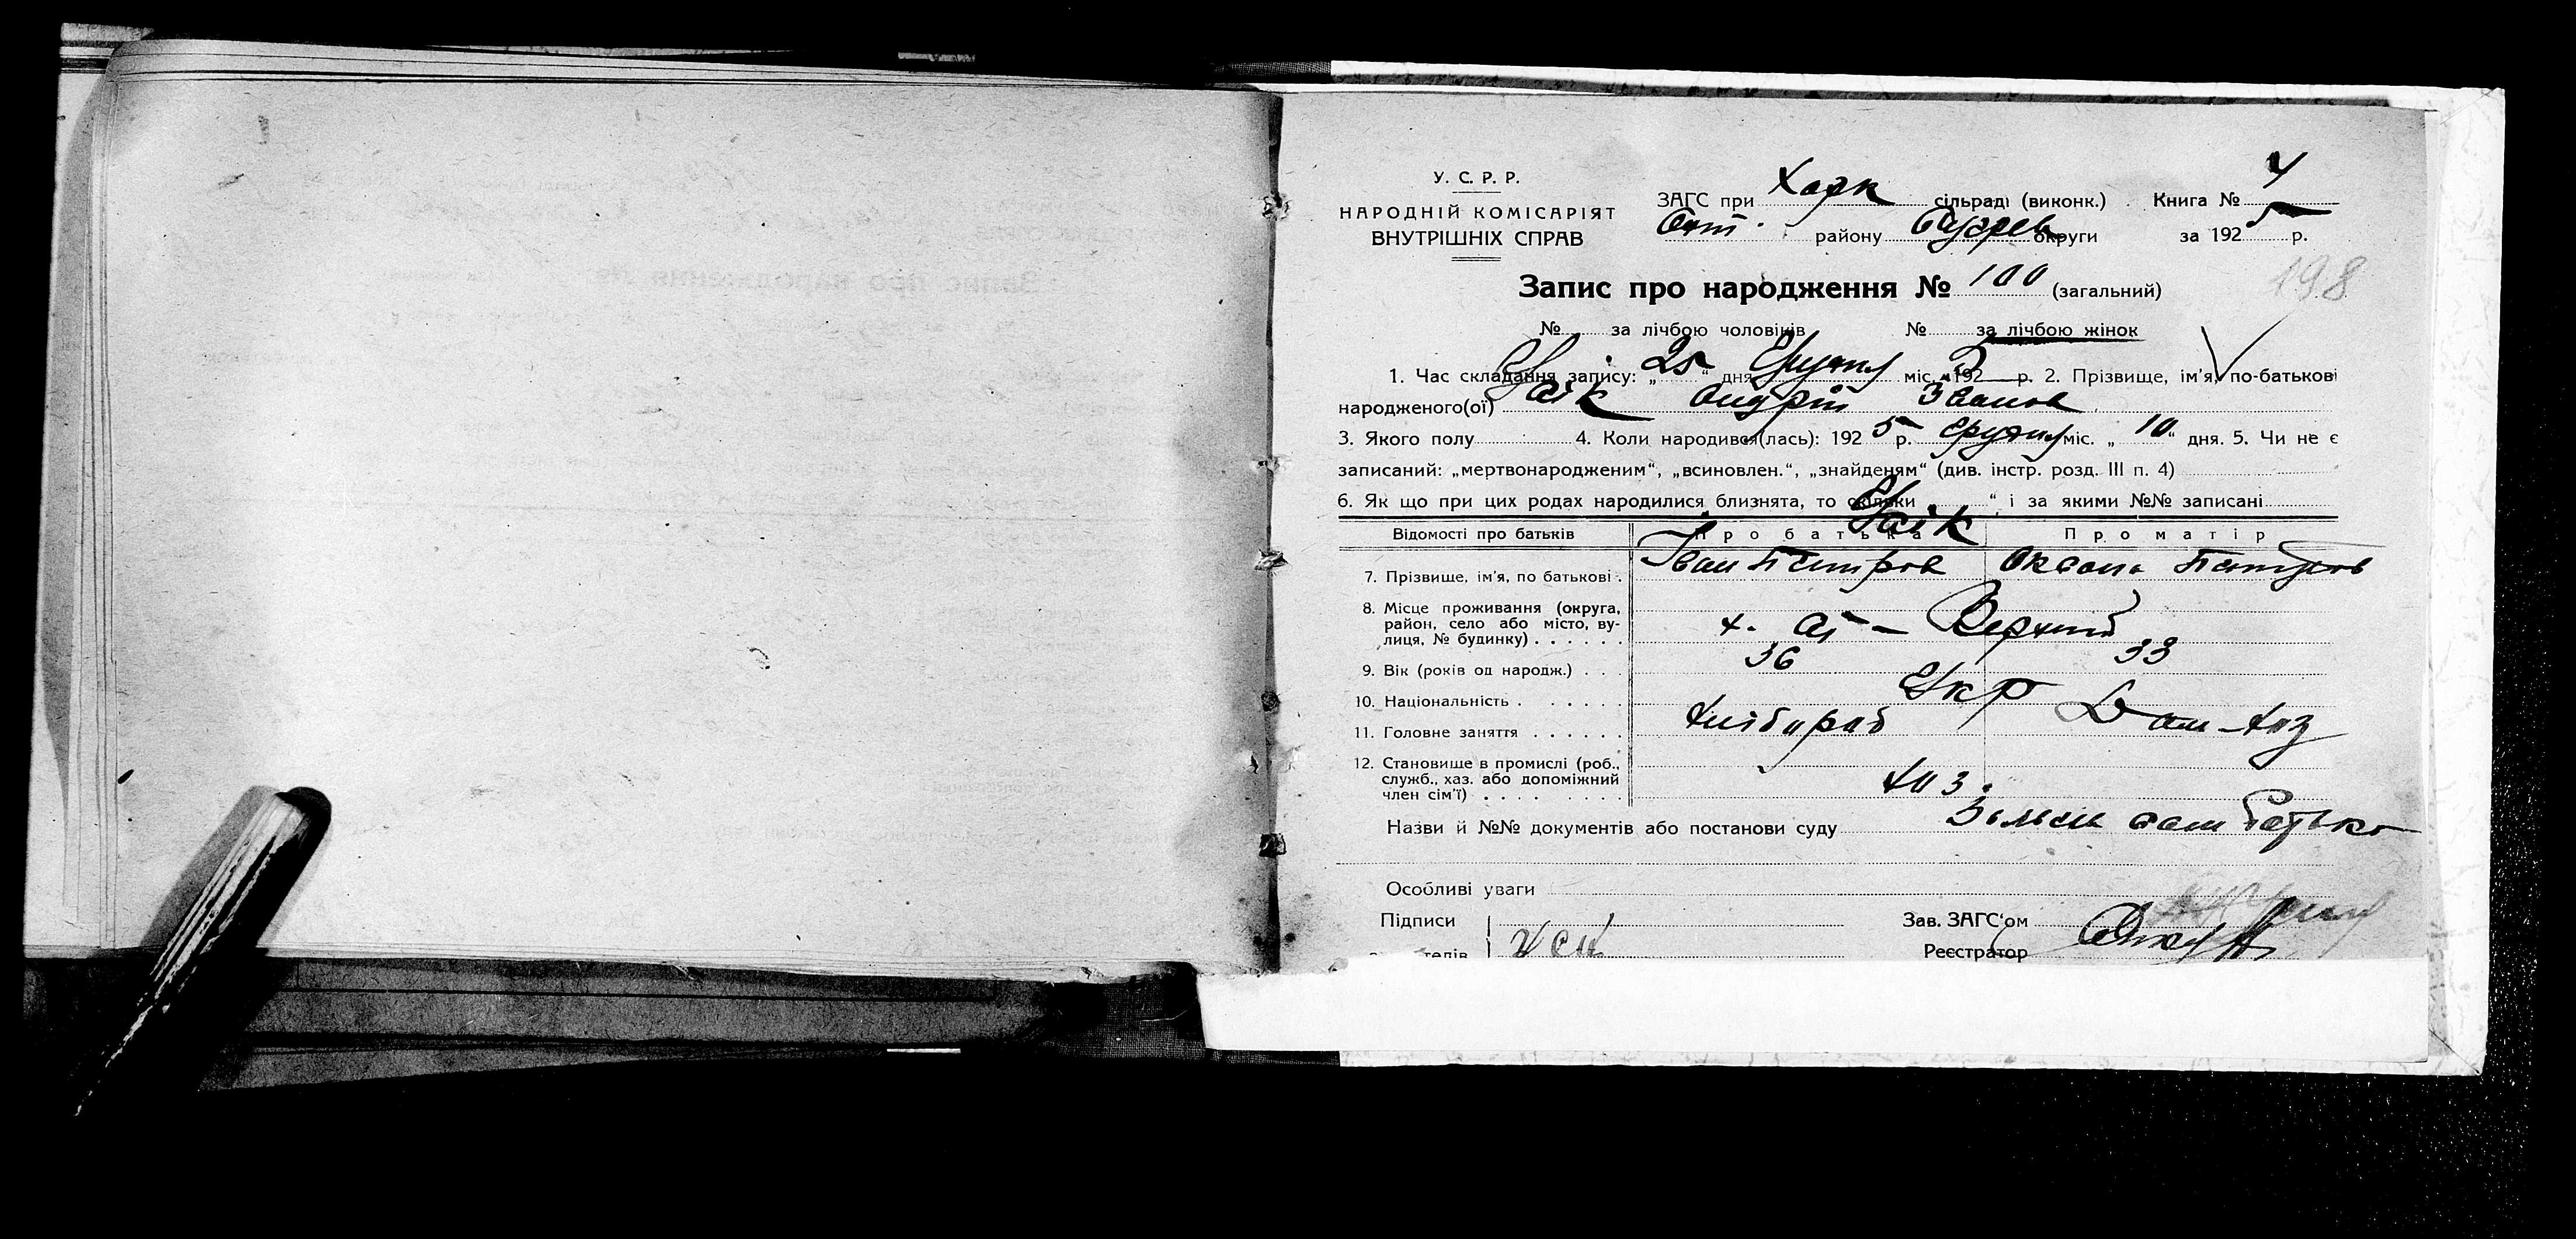 У. С. Р. Р.
НАРОДНІЙ КОМІСАРІЯТ
ВНУТРІШНІХ СПРАВ
ЗАГС при Харк сільраді (виконк.) Книга № 4
району округи за 1925 р.
Запис про народження № 100 (загальний)
198
№ за лічбою чоловіків № за лічбою жінок
1. Час складання запису: „25“ дня Грудня міс. 1925 р. 2. Прізвище, ім'я, по-батькові
народженого(ої) Гаік Андрій Іванов
3. Якого полу 4. Коли народився(лась): 1925 р. Грудня міс. „10“ дня. 5. Чи не є
записаний: „мертвонародженим“, „всиновлен.“, „знайденям“ (див. інстр. розд. III п. 4)
6. Як що при цих родах народилися близнята, то скільки „ “ і за якими №№ записані
Відомості про батьків Про батька Про матір
Гаік
7. Прізвище, ім'я, по батькові Іван Петров Оксана Петров
8. Місце проживання (округа,
район, село або місто, ву-
лиця, № будинку) х. Верхній
9. Вік (років од народж.) 36 33
10. Національність Укр
11. Головне заняття хлібороб Дом-хоз
12. Становище в промислі (роб.,
служб., хаз. або допоміжний
член сім'ї) хоз.
Назви й №№ документів або постанови суду батько
Особливі уваги
Підписи Зав. ЗАГС'ом
Реєстратор